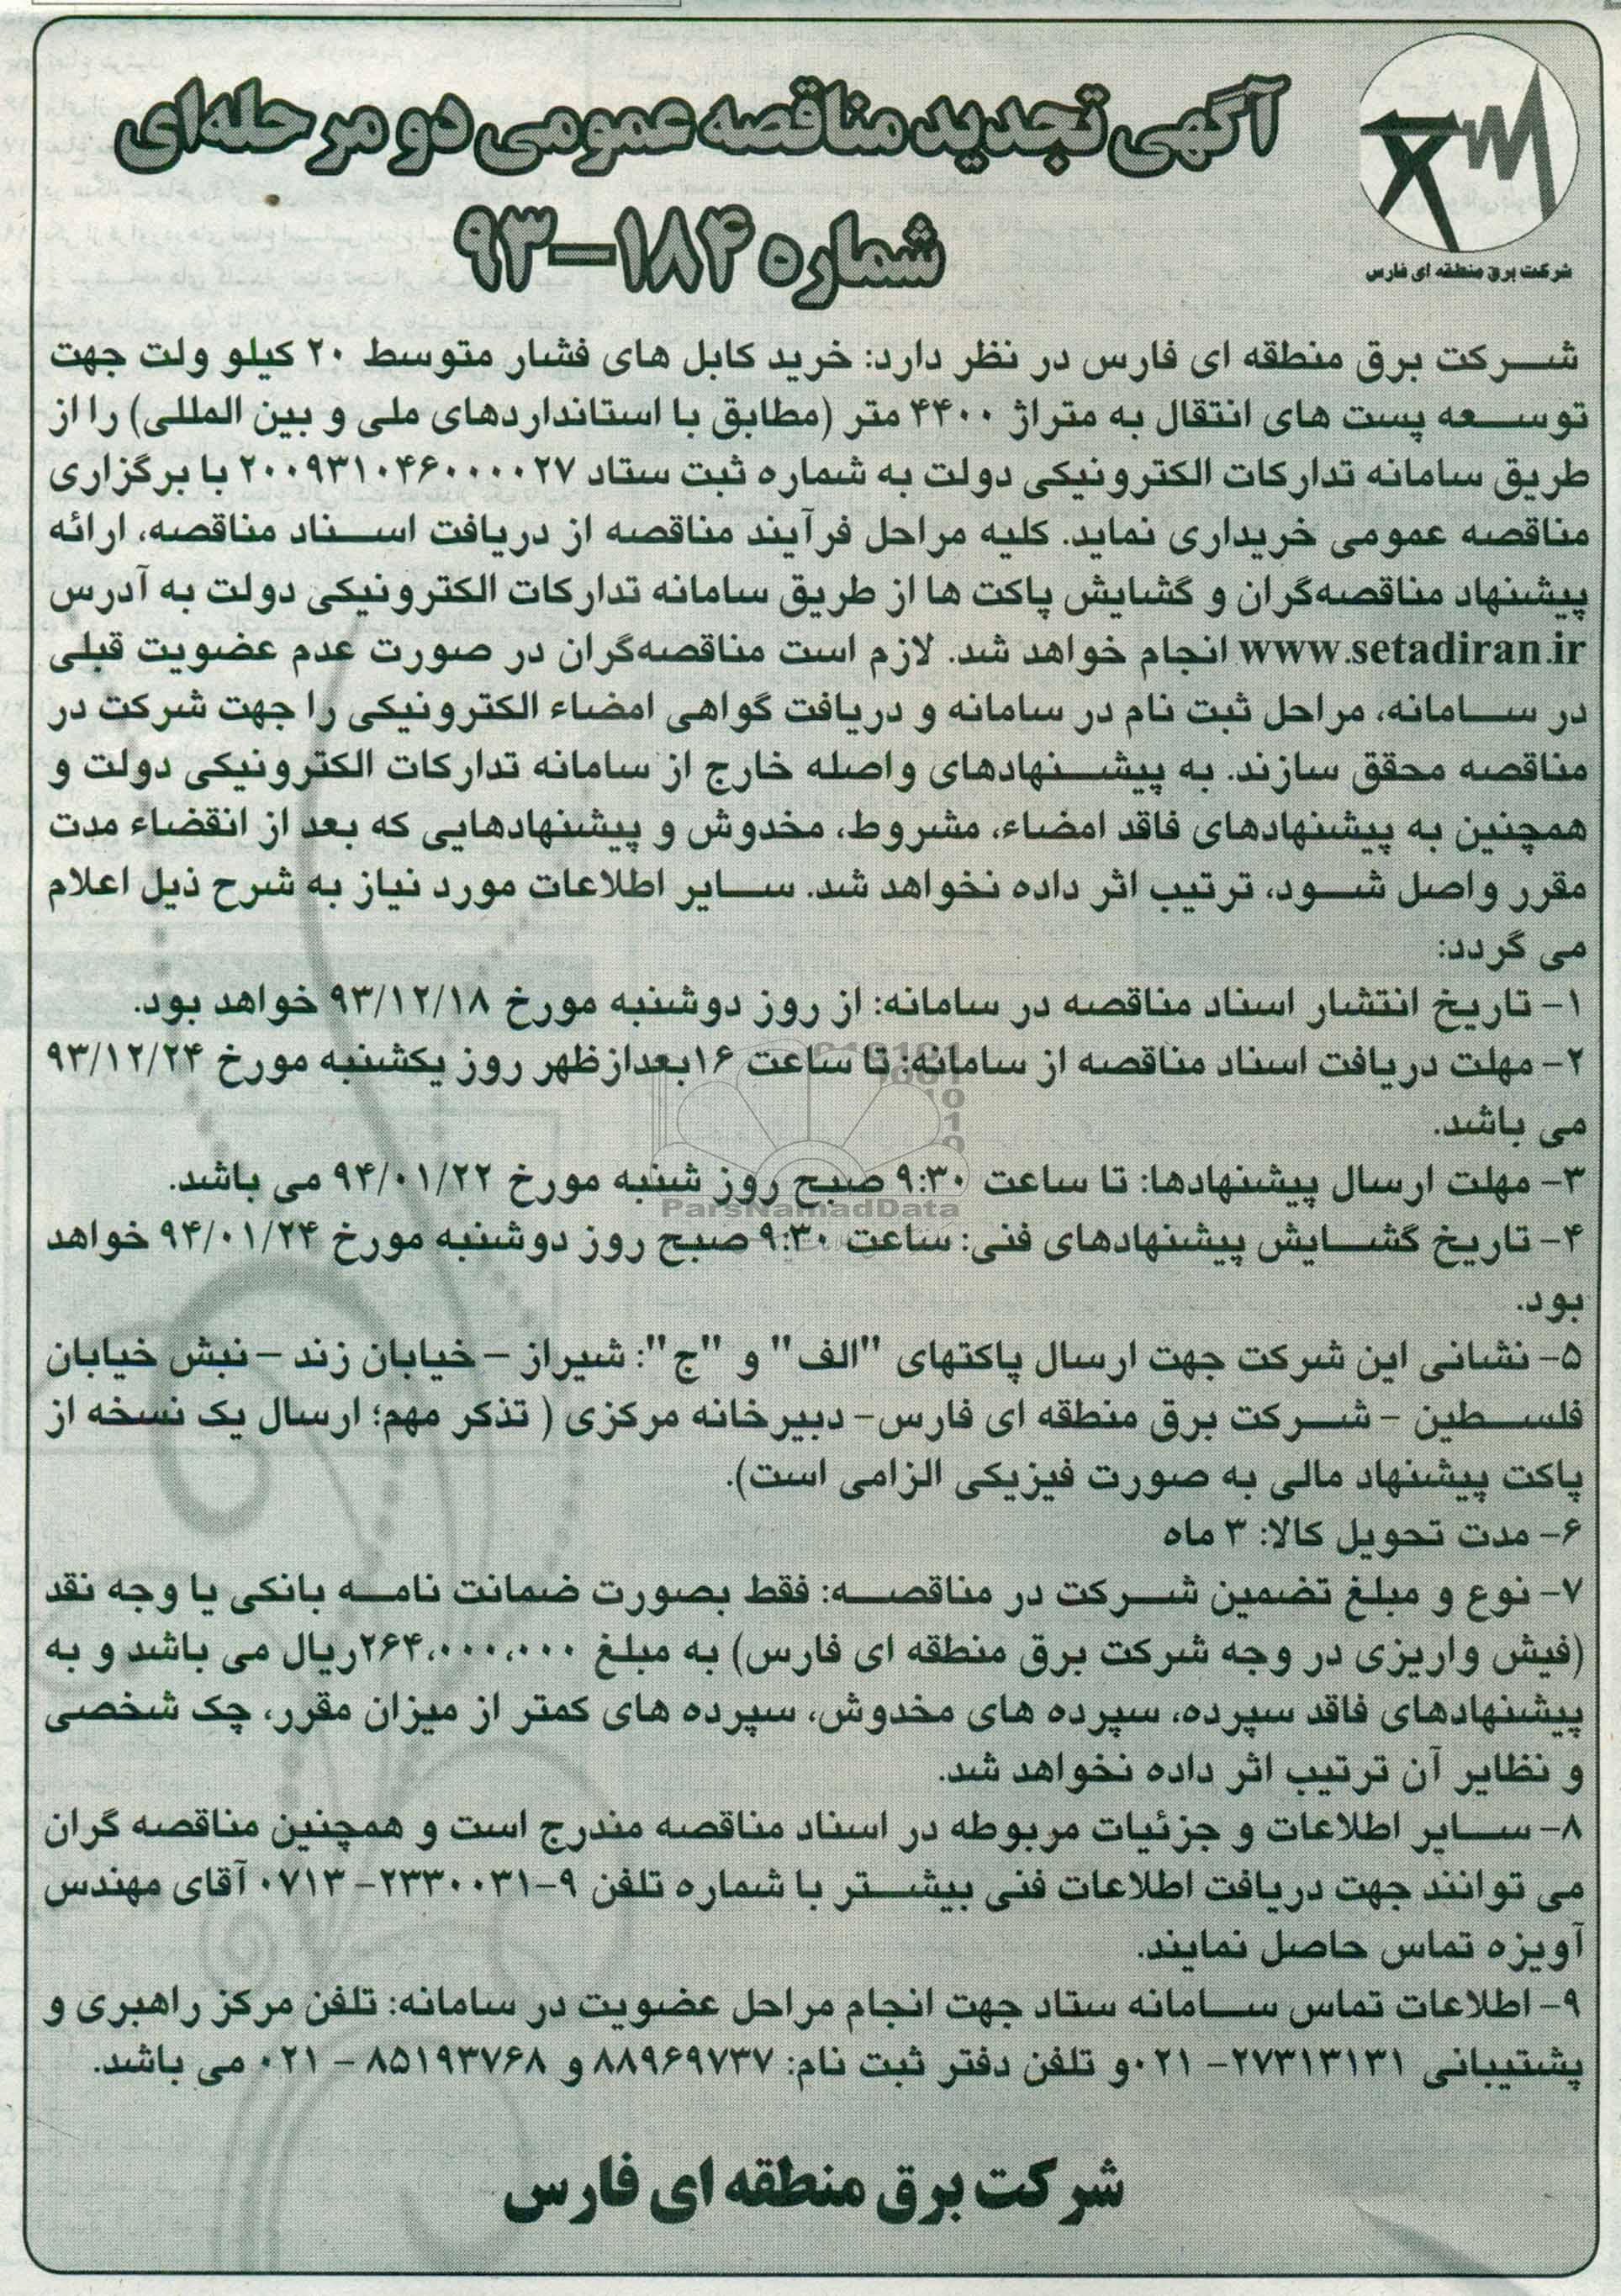 آگهی تجدید مناقصه عمومی دو مرحله‌ای
شماره ۱۸۴-۹۳
شرکت برق منطقه ای فارس
شرکت برق منطقه ای فارس در نظر دارد: خرید کابل های فشار متوسط ۲۰ کیلو ولت جهت
توسعه پست های انتقال به متراژ ۴۴۰۰ متر (مطابق با استانداردهای ملی و بین المللی) را از
طریق سامانه تدارکات الکترونیکی دولت به شماره ثبت ستاد ۲۰۰۹۳۱۰۴۶۰۰۰۰۲۷ با برگزاری
مناقصه عمومی خریداری نماید. کلیه مراحل فرآیند مناقصه از دریافت اسناد مناقصه، ارائه
پیشنهاد مناقصه‌گران و گشایش پاکت ها از طریق سامانه تدارکات الکترونیکی دولت به آدرس
www.setadiran.ir انجام خواهد شد. لازم است مناقصه‌گران در صورت عدم عضویت قبلی
در سامانه، مراحل ثبت نام در سامانه و دریافت گواهی امضاء الکترونیکی را جهت شرکت در
مناقصه محقق سازند. به پیشنهادهای واصله خارج از سامانه تدارکات الکترونیکی دولت و
همچنین به پیشنهادهای فاقد امضاء، مشروط، مخدوش و پیشنهادهایی که بعد از انقضاء مدت
مقرر واصل شود، ترتیب اثر داده نخواهد شد. سایر اطلاعات مورد نیاز به شرح ذیل اعلام
می گردد:
۱- تاریخ انتشار اسناد مناقصه در سامانه: از روز دوشنبه مورخ ۹۳/۱۲/۱۸ خواهد بود.
۲- مهلت دریافت اسناد مناقصه از سامانه: تا ساعت ۱۶بعدازظهر روز یکشنبه مورخ ۹۳/۱۲/۲۴
می باشد.
۳- مهلت ارسال پیشنهادها: تا ساعت ۹:۳۰ صبح روز شنبه مورخ ۹۴/۰۱/۲۲ می باشد.
ParsNamadData
۴- تاریخ گشایش پیشنهادهای فنی: ساعت ۹:۳۰ صبح روز دوشنبه مورخ ۹۴/۰۱/۲۴ خواهد
بود.
۵- نشانی این شرکت جهت ارسال پاکتهای "الف" و "ج": شیراز – خیابان زند – نبش خیابان
فلسطین – شرکت برق منطقه ای فارس- دبیرخانه مرکزی ( تذکر مهم؛ ارسال یک نسخه از
پاکت پیشنهاد مالی به صورت فیزیکی الزامی است).
۶- مدت تحویل کالا: ۳ ماه
۷- نوع و مبلغ تضمین شرکت در مناقصه: فقط بصورت ضمانت نامه بانکی یا وجه نقد
(فیش واریزی در وجه شرکت برق منطقه ای فارس) به مبلغ ۲۶۴،۰۰۰،۰۰۰ریال می باشد و به
پیشنهادهای فاقد سپرده، سپرده های مخدوش، سپرده های کمتر از میزان مقرر، چک شخصی
و نظایر آن ترتیب اثر داده نخواهد شد.
۸- سایر اطلاعات و جزئیات مربوطه در اسناد مناقصه مندرج است و همچنین مناقصه گران
می توانند جهت دریافت اطلاعات فنی بیشتر با شماره تلفن ۹-۲۳۳۰۰۳۱- ۰۷۱۳ آقای مهندس
آویزه تماس حاصل نمایند.
۹- اطلاعات تماس سامانه ستاد جهت انجام مراحل عضویت در سامانه: تلفن مرکز راهبری و
پشتیبانی ۲۷۳۱۳۱۳۱- ۰۲۱و تلفن دفتر ثبت نام: ۸۸۹۶۹۷۳۷ و ۸۵۱۹۳۷۶۸ – ۰۲۱ می باشد.
شرکت برق منطقه ای فارس